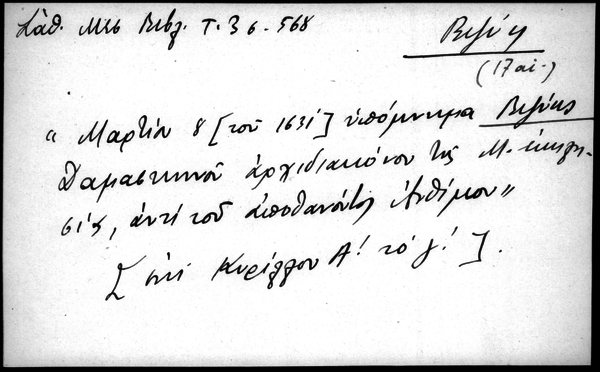 Σάθ. Μεσ. Βιβλ. Τ. 3 σ. 568
Βιζύη
(17 αἰ.)
« Μαρτίου 8 [τοῦ 1631] ὑπόμνημα Βιζύης
Δαμασκηνοῦ ἀρχιδιακόνου τῆς Μ. ἐκκλη-
σίας, ἀντὶ τοῦ ἀποθανόντος Ἀνθίμου »
[ ἐπὶ Κυρίλλου Α! τὸ γ! ].